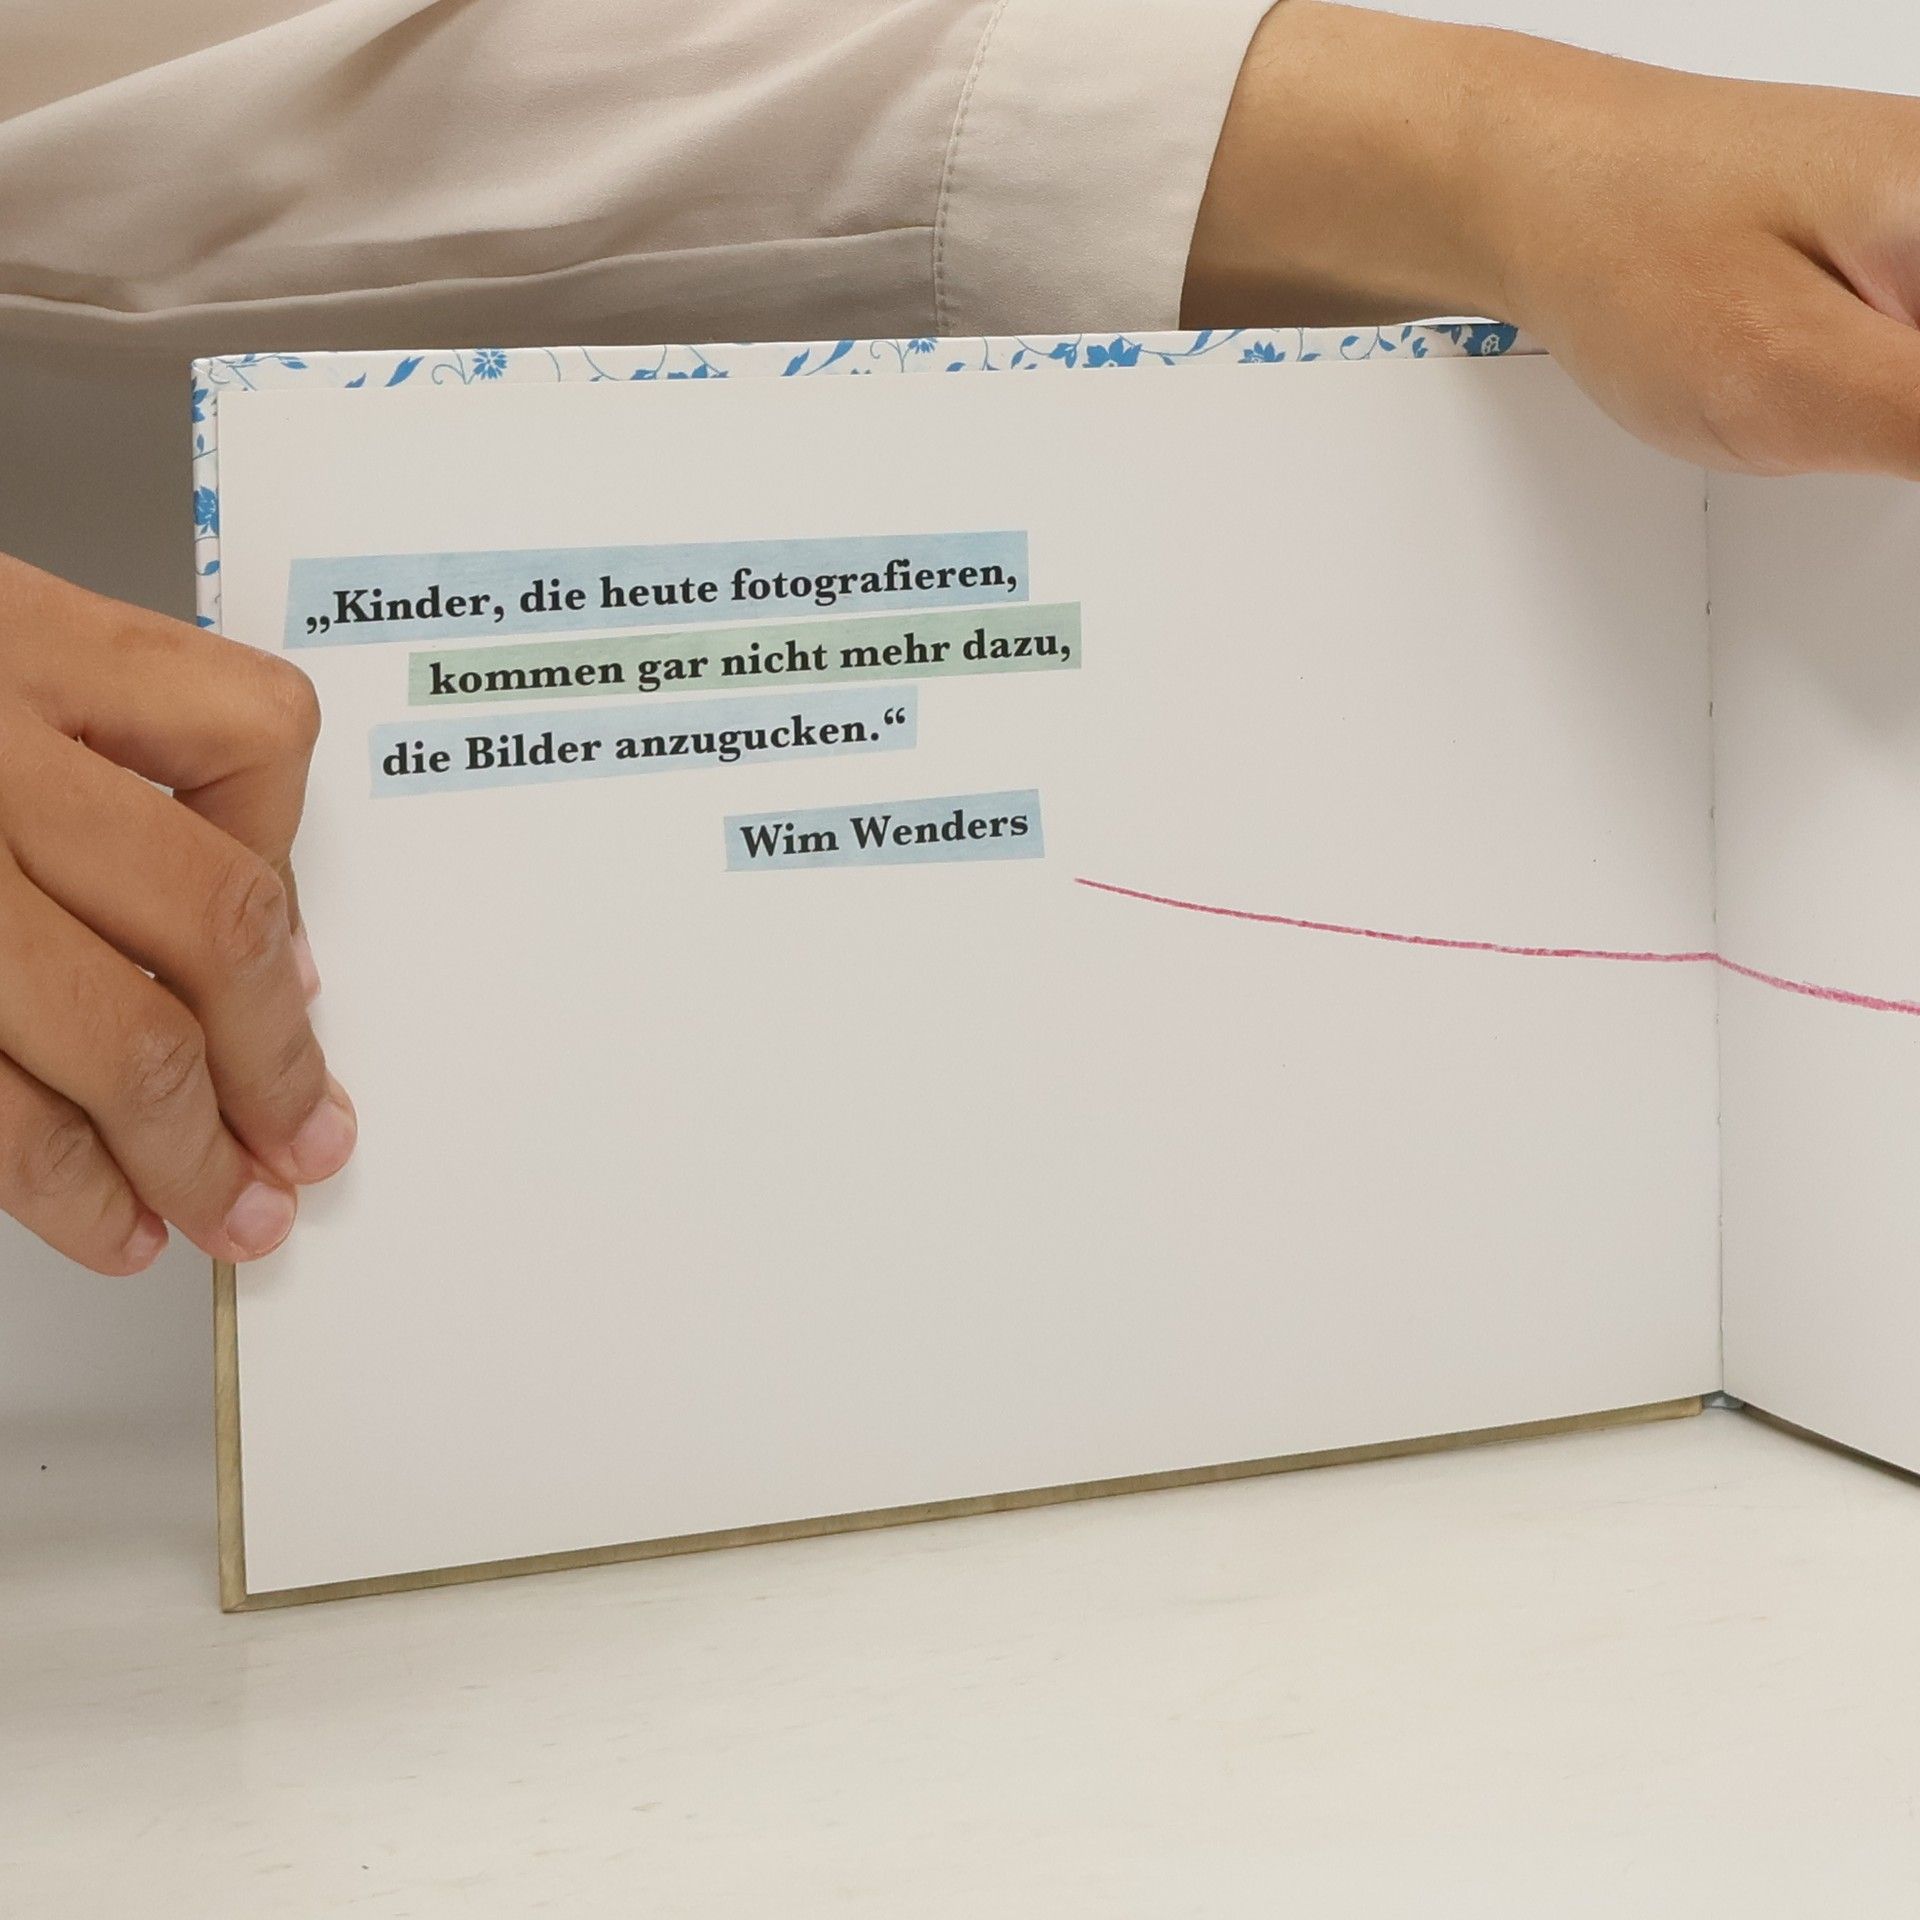 „Kinder, die heute fotografieren,
kommen gar nicht mehr dazu,
die Bilder anzugucken.“
Wim Wenders